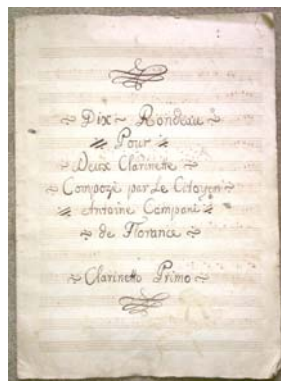 Dix Rondeau
Pour
Deux Clarinette
Compozé par Le Citoyen
Antoine Campani
de Florance
Clarinetto Primo